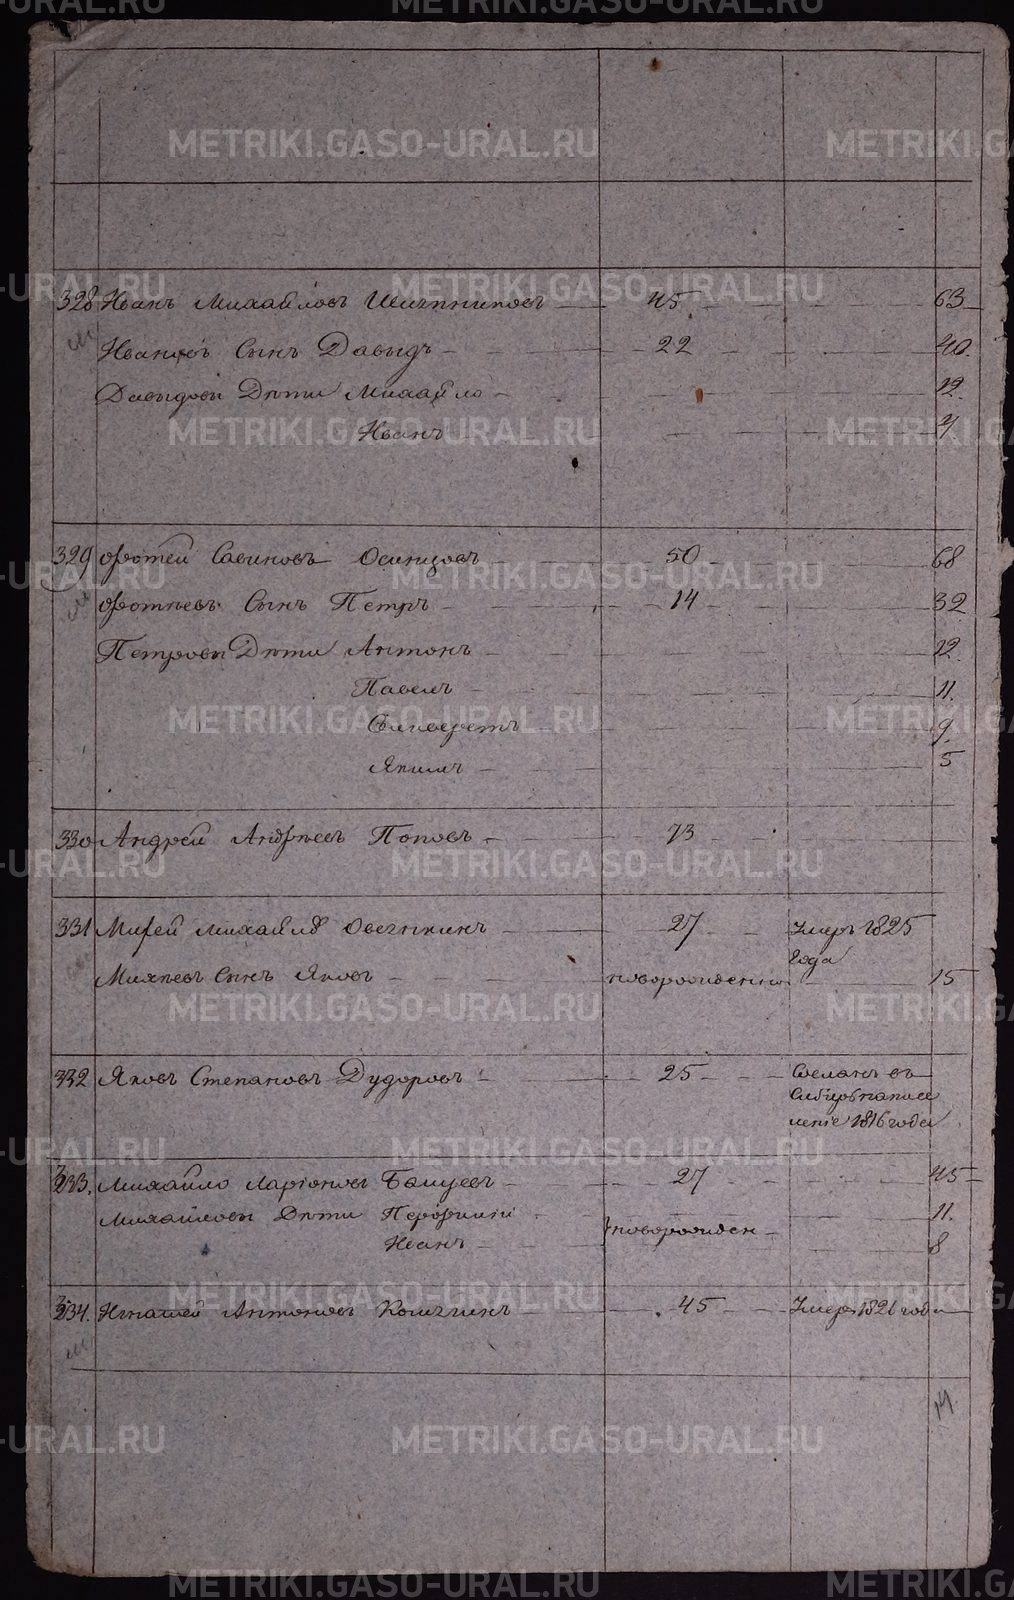 328 Иванъ Михайловъ Шичинниковъ 45 63
Ивановъ Сынъ Давыдъ 22 40.
Давыдовы Дѣти Михайло 12.
Иванъ 7
329 Фотей Савиновъ Осинцовъ 50 68
Фотѣевъ Сынъ Петръ 14 32
Петровы Дѣти Антонъ 12.
Павелъ 11.
Селиверстъ 9.
Якимъ 5
330 Андрей Андрѣевъ Поповъ 73
331 Михей Михайловъ Овечкинъ 27 Умеръ 1825
года
Михѣевъ Сынъ Яковъ новорожденный 15
332 Яковъ Степановъ Дудоровъ 25 Сосланъ въ
Сибирь на посе
леніе 1816 года
333. Михайло Ларіоновъ 27 45
Михайловы Дѣти Перфилий 11.
новорожден
Иванъ 8
334. Игнатей Антоновъ 45 Умеръ 1821 года
14
METRIKI.GASO-URAL.RU